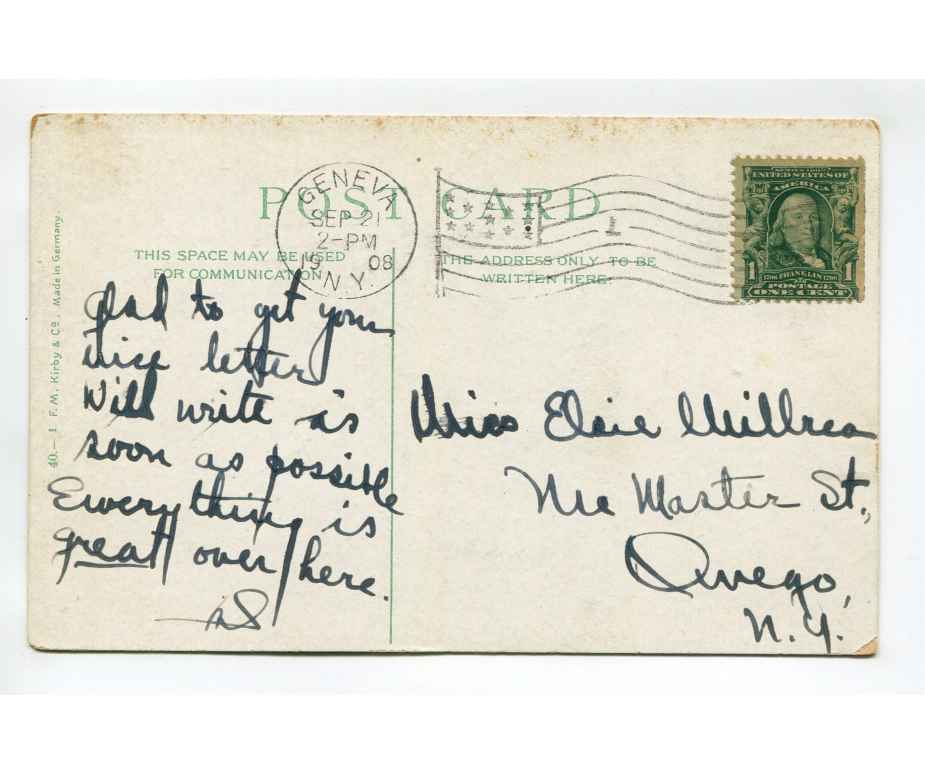 POST CARD
GENEVA
SEP 21
2-PM
1908
N.Y.
1
UNITED STATES OF
AMERICA
1 1706 FRANKLIN 1790 1
POSTAGE
ONE CENT
THIS SPACE MAY BE USED
FOR COMMUNICATION
THE ADDRESS ONLY TO BE
WRITTEN HERE.
40.–1 F. M. Kirby & Co. Made in Germany.
Glad to get your
nice letter
Will write as
soon as possible
Everything is
great over here.
Miss Elsie
Mc Master St.,
Owego,
N.Y.